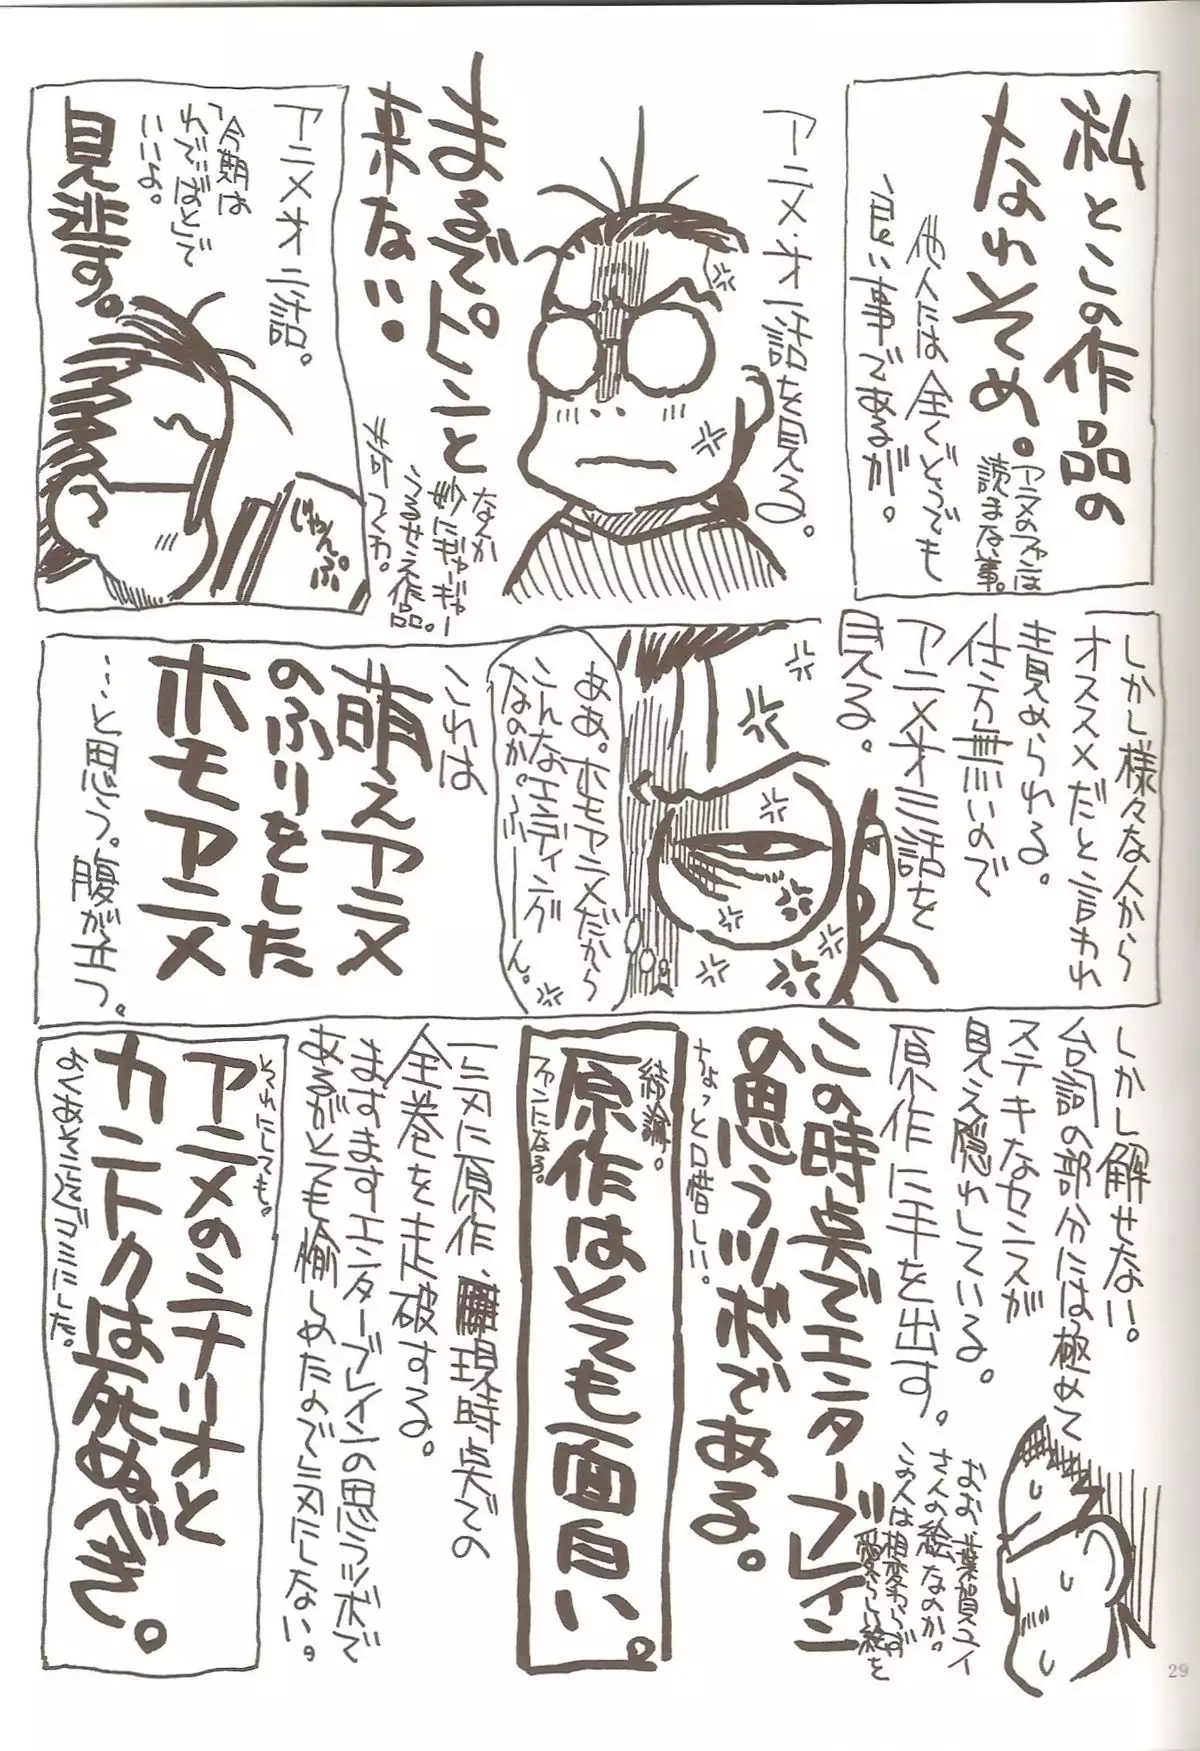 私とこの作品の
なれそめ。
アニメのファンは
読まない事。
他人には全くどうでも
良い事であるが。
アニメオ一話を見る。
まるでピンと
来ない。
なんか
妙にギャーギャー
うるせえ作品。
だってわ。
アニメオ二話。
「今期は
わででばとで
いいよ。
見逃す。
じゃんぷ
しかし様々な人から
オススメだと言われ
責められる。
仕方無いので
アニメオ三話を
見る。
ああ。ホモアニメだから
こんなエンディング
なのか。ふーーん。
これは
萌えアニメ
のふりをした
ホモアニメ
…と思う。腹が立つ。
しかし解せない。
台詞の部分には極めて
ステキなセンスが
見え隠れしている。
原作に手を出す。
おお、芳賀ユイ
さんの絵なのか。
この人は相変わらず
愛らしい絵を
この時点でエンターブレイン
の思うツボである。
ちょっと口惜しい。
結論。
原作はとても面白い。
ファンになる。
一気に原作、現時点での
全巻を走破する。
ますますエンターブレインの思うツボで
あるがとても愉しめたので気にしない。
それにしても。
アニメのシナリオと
カントクは死ぬべき。